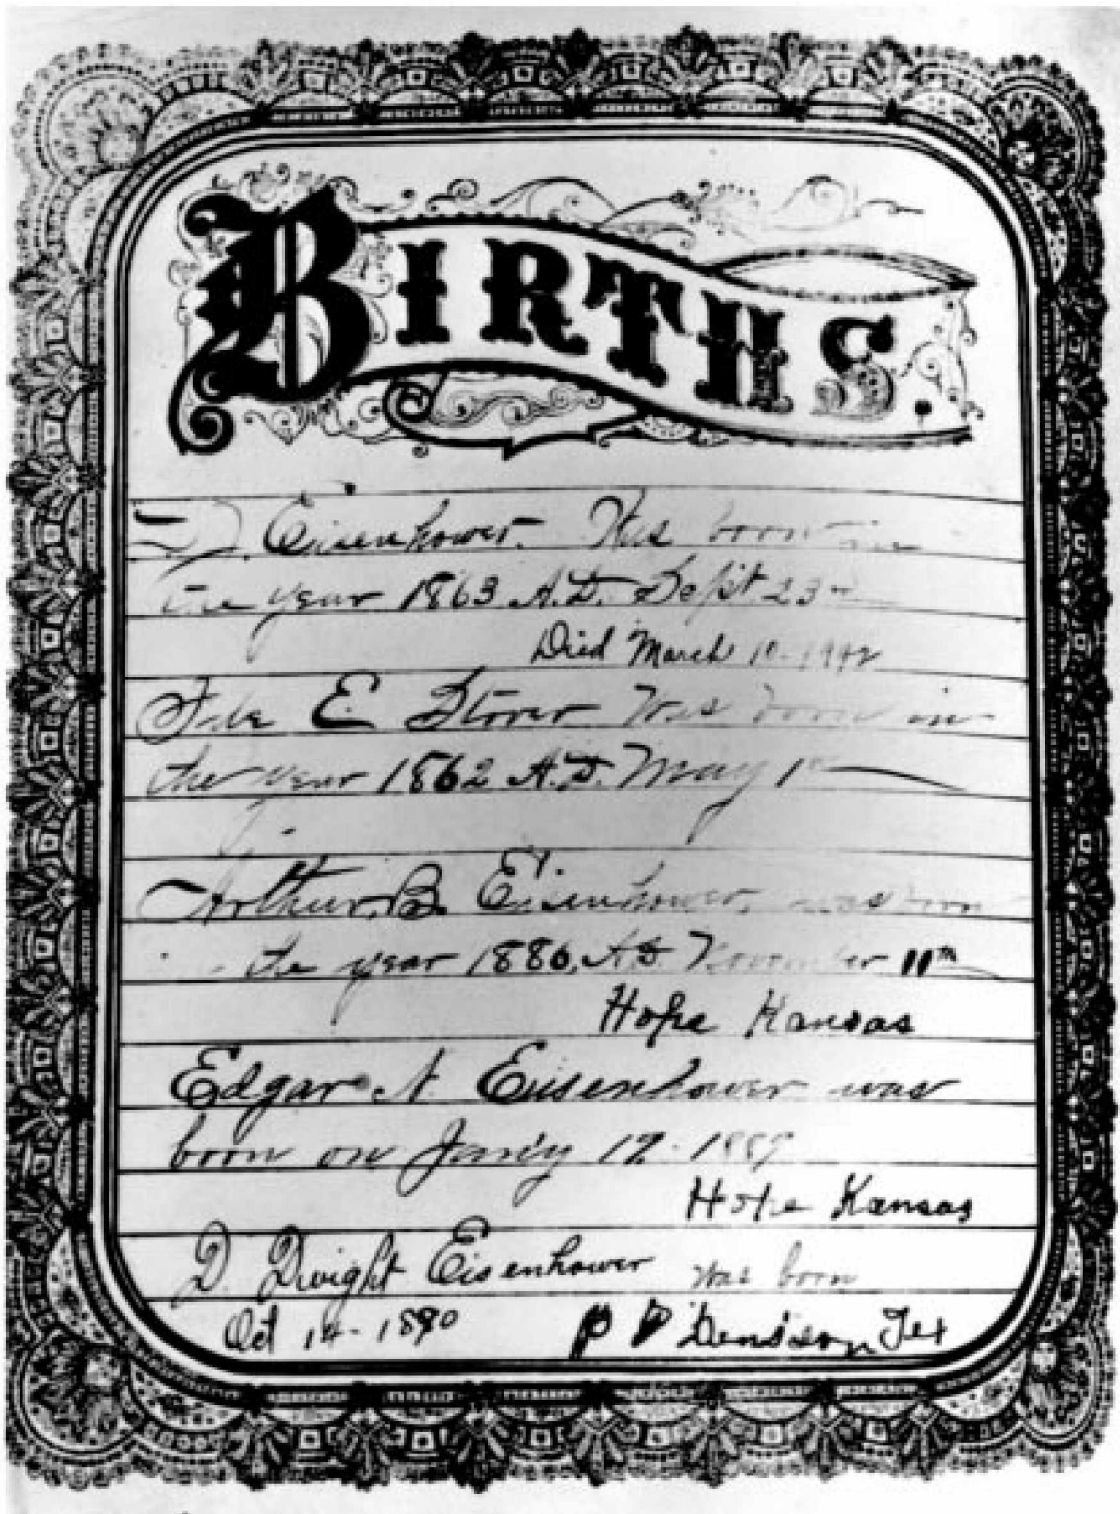 BIRTHS.
D. Eisenhower. Was born in
the year 1863 A.D. Sept 23rd
Died March 10. 1942
Ida E. Stover Was born in
the year 1862 A.D. May 1st
Arthur, B. Eisenhower, was born
the year 1886, A.D. November 11th
Hope Kansas
Edgar N. Eisenhower was
born on Jan'y 19. 1889
Hope Kansas
D. Dwight Eisenhower was born
Oct 14. 1890 Denison, Tex